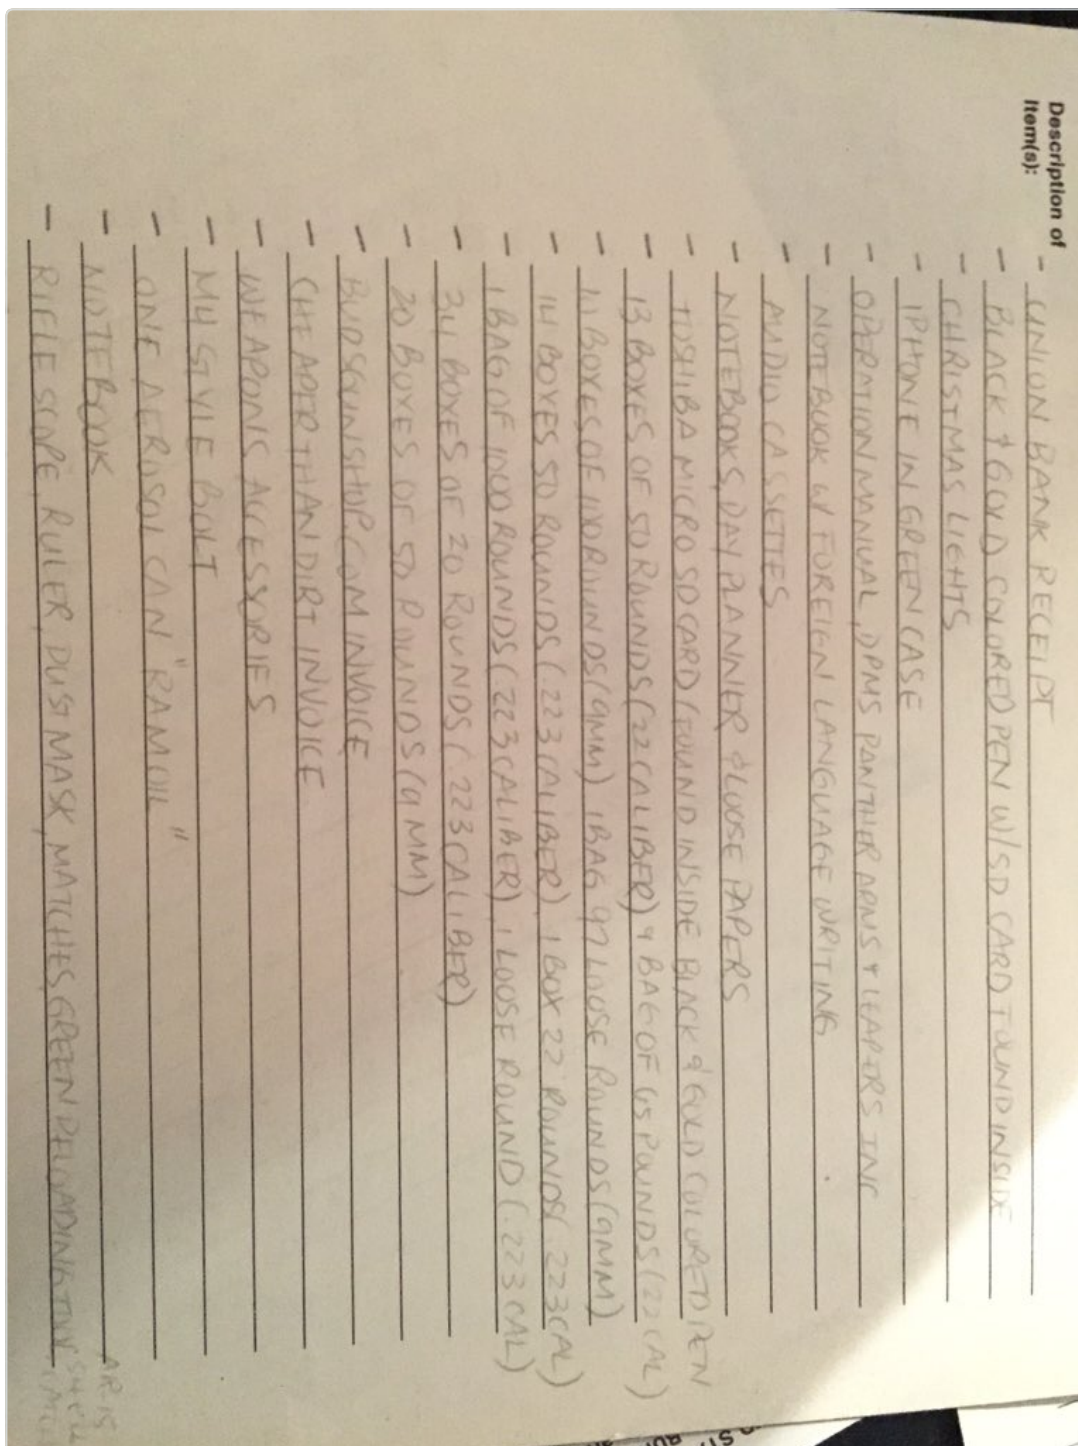 Description of
Item(s):
- UNION BANK RECEIPT
- BLACK & GOLD COLORED PEN W/ SD CARD FOUND INSIDE
- CHRISTMAS LIGHTS
- IPHONE IN GREEN CASE
- OPERATION MANUAL, DPMS PANTHER ARMS & LEAPERS INC
- NOTEBOOK W/ FOREIGN LANGUAGE WRITING
- AUDIO CASSETTES
- NOTEBOOKS, DAY PLANNER & LOOSE PAPERS
- TOSHIBA MICRO SD CARD (FOUND INSIDE BLACK & GOLD COLORED PEN
- 13 BOXES OF 50 ROUNDS (22 CALIBER) & BAG OF 65 ROUNDS (22 CAL)
- 11 BOXES OF 100 ROUNDS (9MM) 1 BAG 97 LOOSE ROUNDS (9MM)
- 14 BOXES 50 ROUNDS (223 CALIBER), 1 BOX 22 ROUNDS (.223 CAL)
- 1 BAG OF 1000 ROUNDS (223 CALIBER), 1 LOOSE ROUND (.223 CAL)
- 34 BOXES OF 20 ROUNDS (.223 CALIBER)
- 20 BOXES OF 50 ROUNDS (9MM)
- BUDSGUNSHOP.COM INVOICE
- CHEAPER THAN DIRT INVOICE
- WEAPONS ACCESSORIES
- M4 STYLE BOLT
- ONE AEROSOL CAN "RAMOIL"
- NOTEBOOK
- RIFLE SCOPE, RULER, DUST MASK, MATCHES, GREEN RELOADING TOOL, AR15